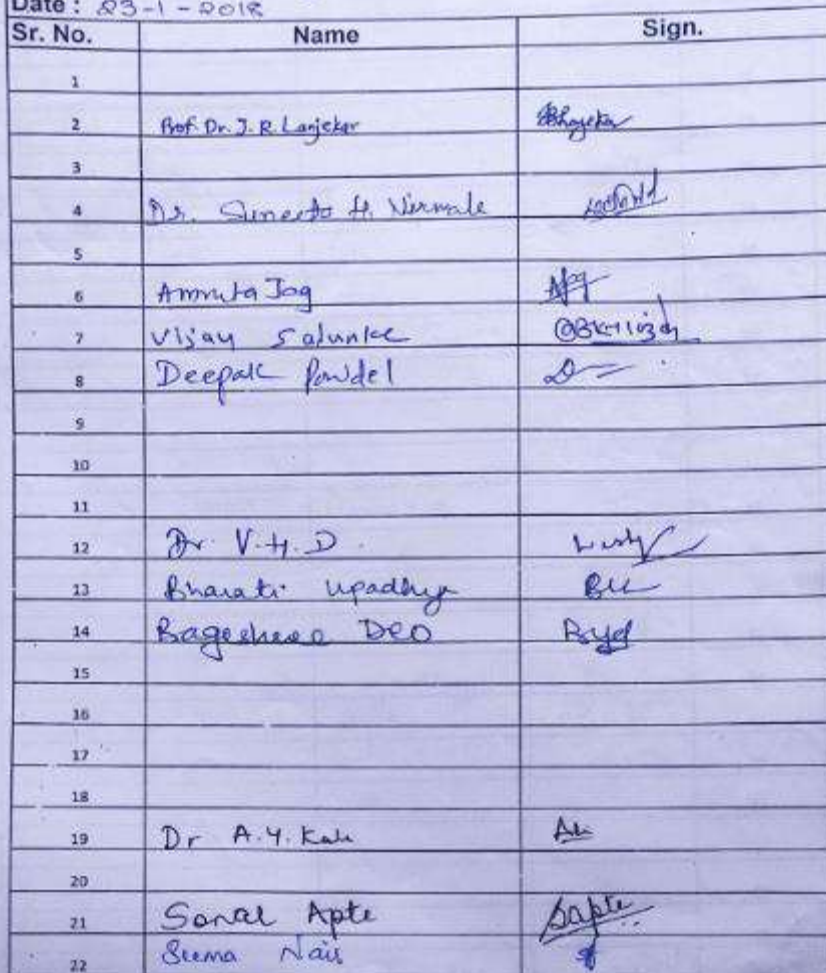 Date : 23-1-2018
Sr. No. Name Sign.
1
2 Prof. Dr. J. R. Lanjekar
3
4 Dr. Suneeta H. Nirmale
5
6 Amruta Jog
7 Vijay Salunke
8 Deepak Powdel
9
10
11
12 Dr. V.H.D.
13 Bharati Upadhye
14 Bageshree Deo
15
16
17
18
19 Dr A.Y. Kale
20
21 Sonal Apte Sapte
22 Seema Nair